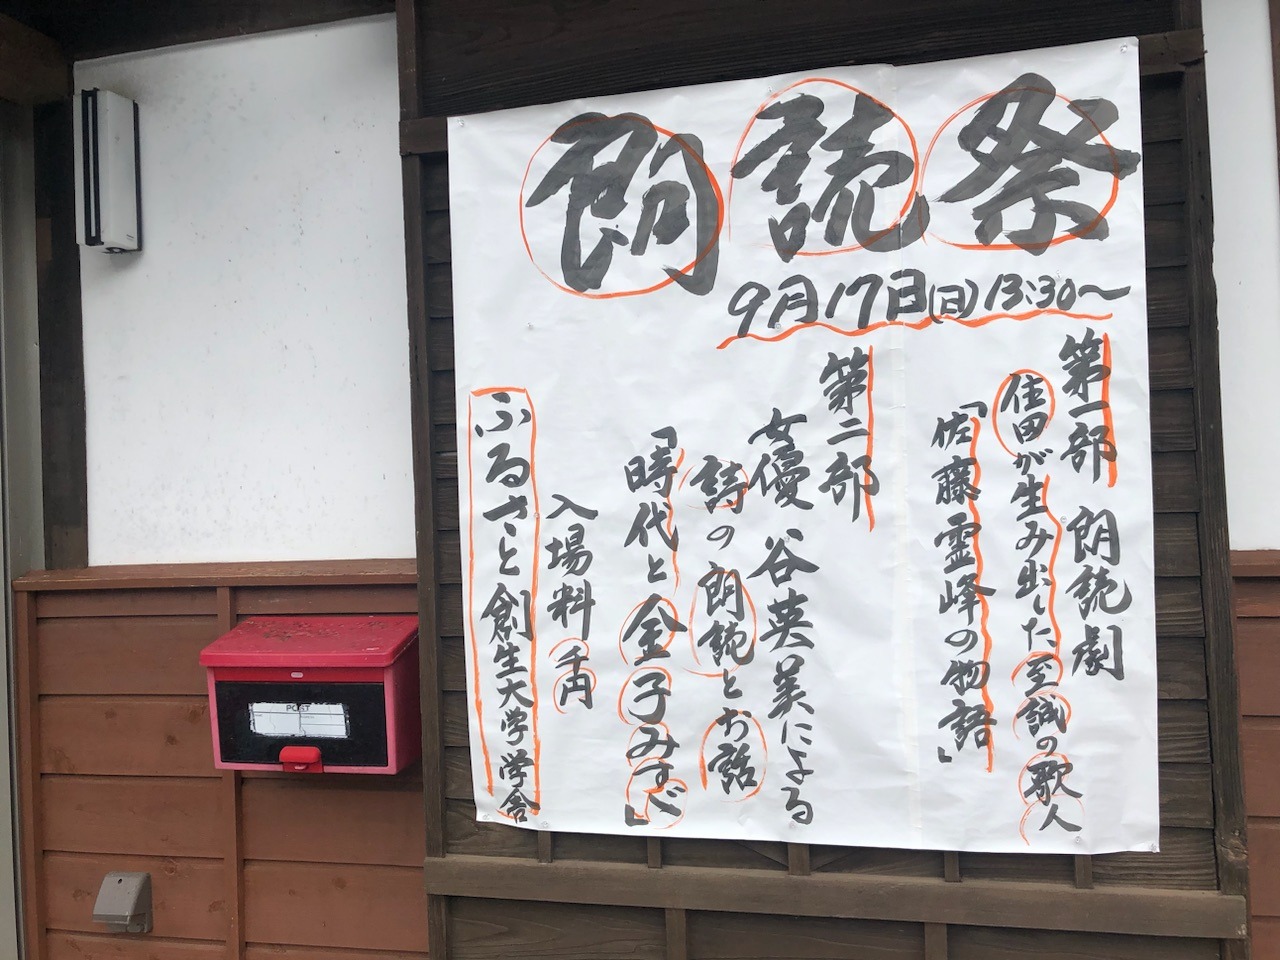 朗読祭
9月17日(日)13:30〜
第一部 朗読劇
住田が生み出した至誠の歌人
「佐藤霊峰の物語」
第二部
女優 谷英美による
詩の朗読とお話
「時代と金子みすゞ」
入場料 千円
ふるさと創生大学学舎
POST